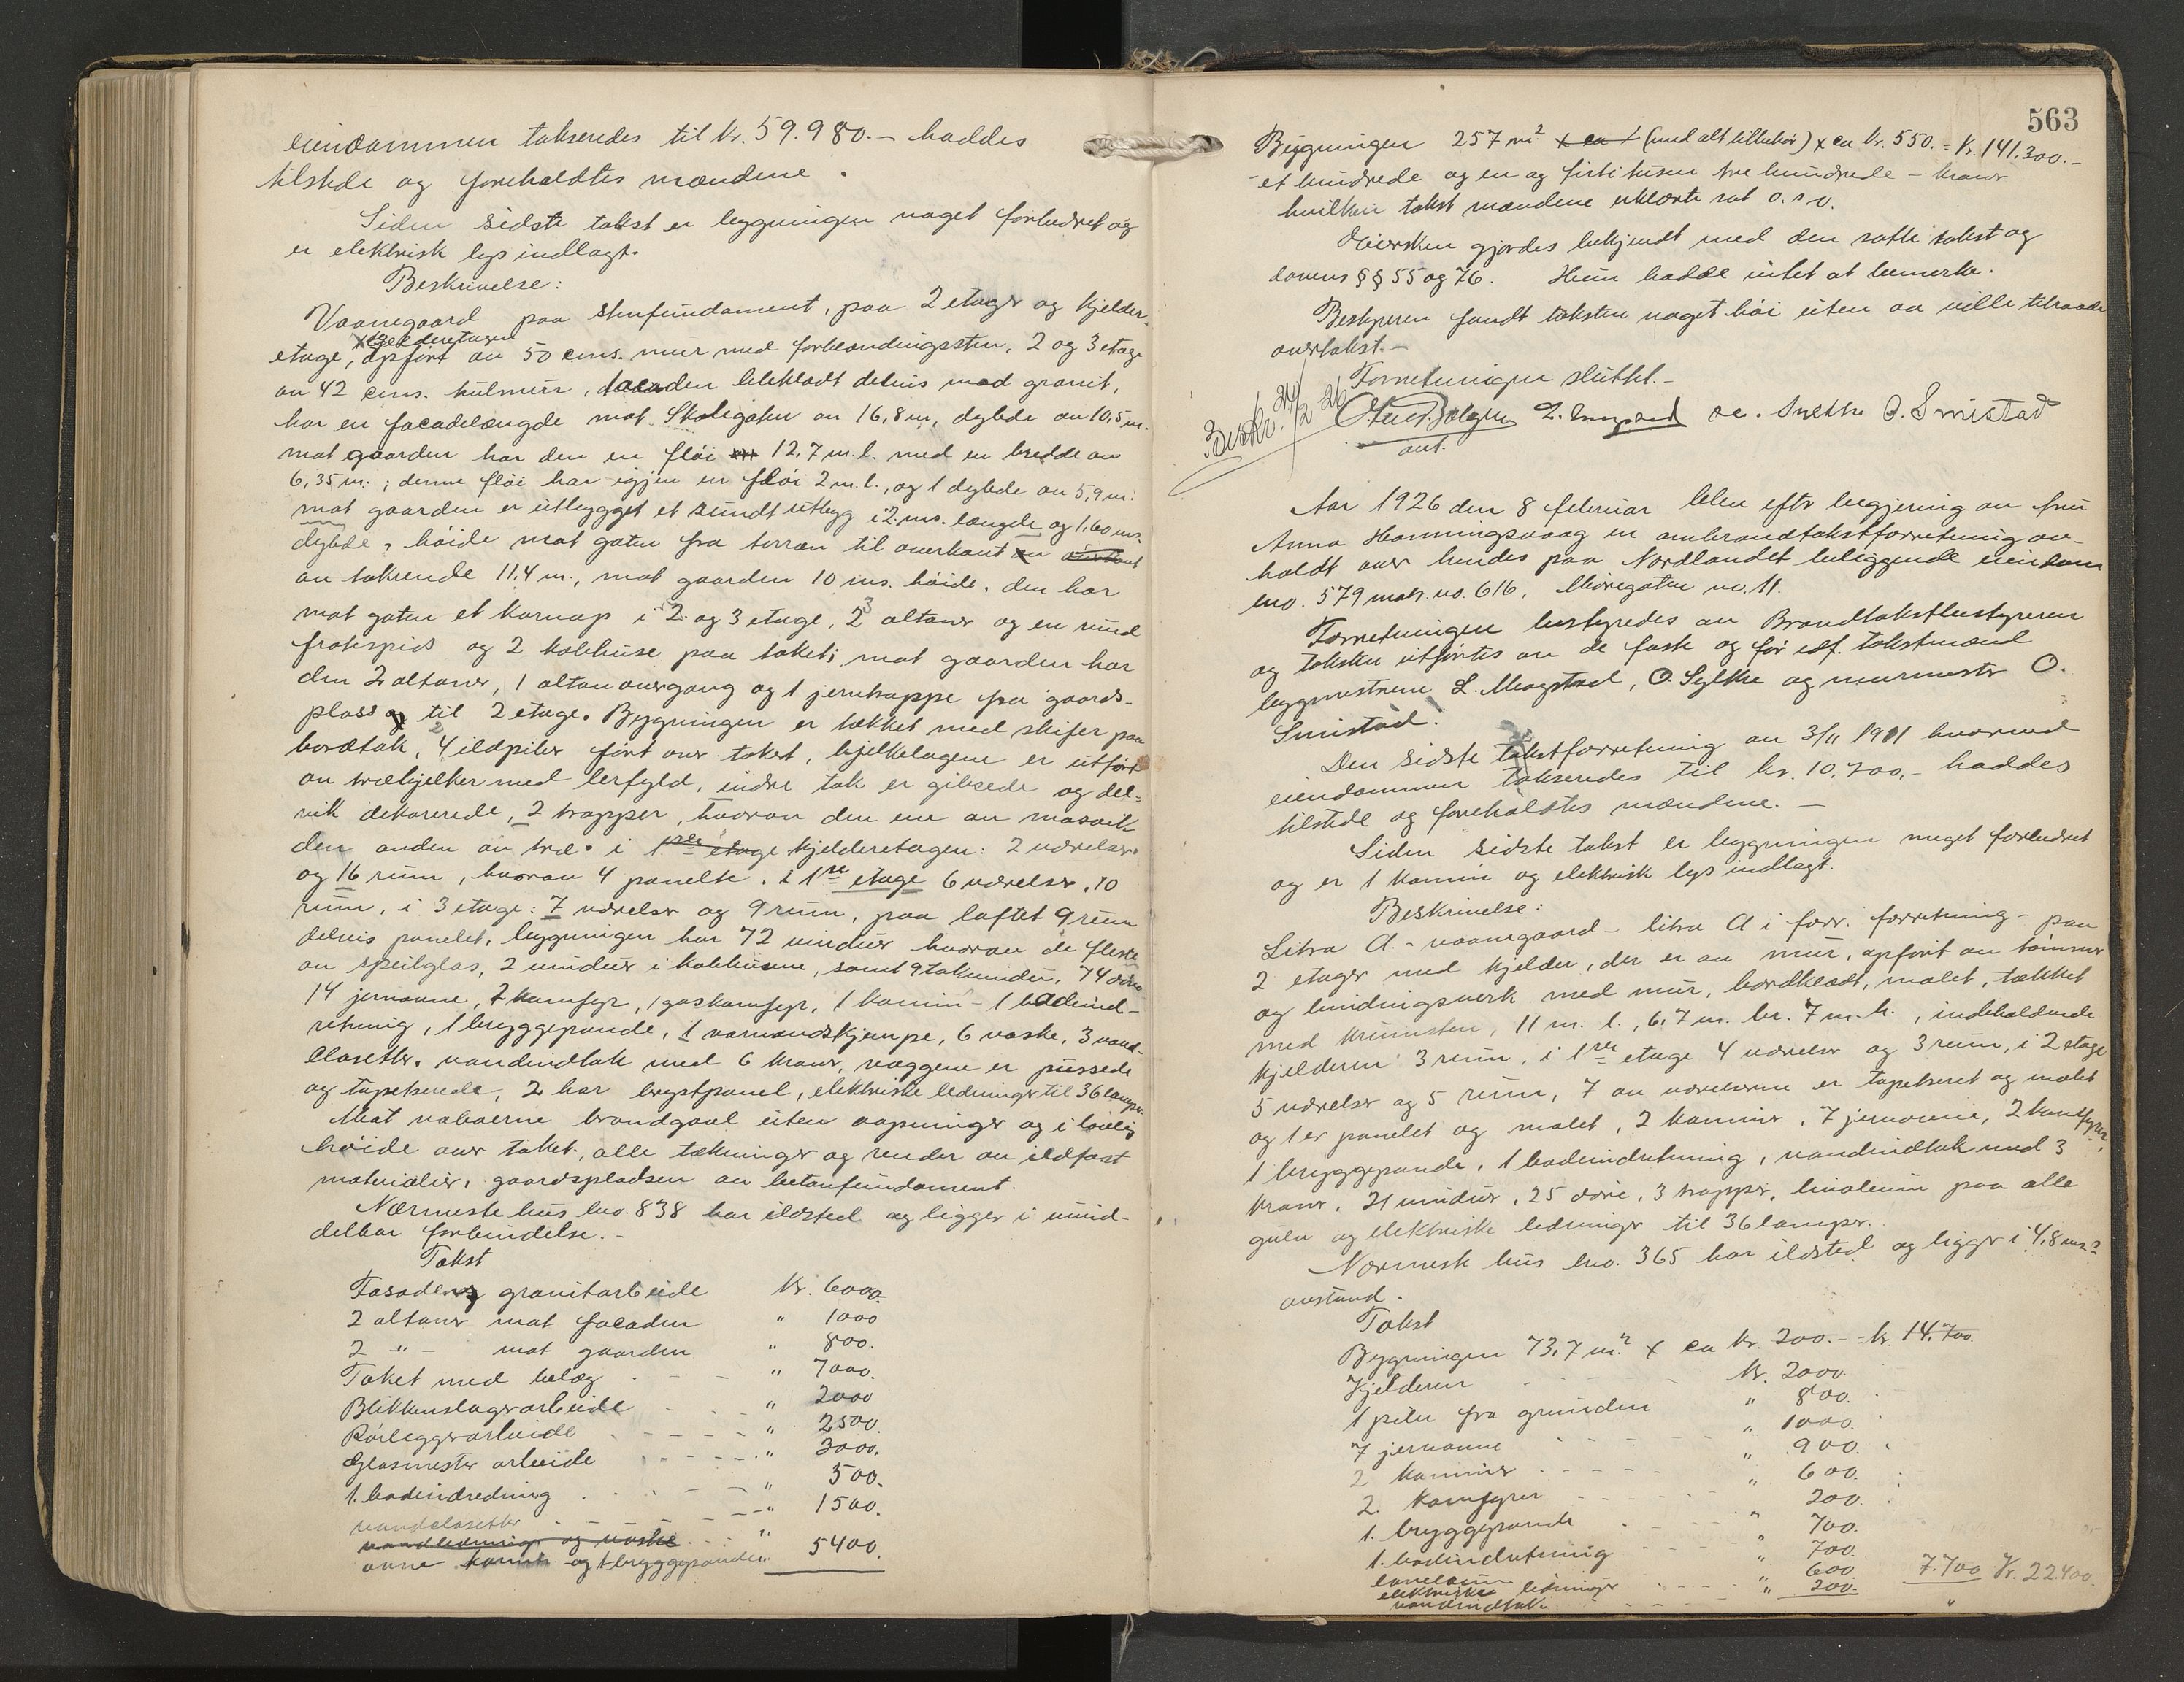 eiendommen takseredes til kr. 59.980.- haddes
tilstede og foreholdtes mændene.
Siden sidste takst er bygningen noget forbedret og
er elektrisk lys indlagt.
Beskrivelse:
Vaanegaard paa stenfundament, paa 2 etager og kjelder-
kjelderetagen
etage, opført av 50 cms. mur med forblændingssten, 2 og 3 etage
av 42 cms. hulmur, facaden beklædt delvis med granit,
har en facadelængde mot Skolegaten av 16,8 m, dybde av 10,5 m.
mot gaarden har den en fløi 12,7 m. l. med en bredde av
6,35 m.; denne fløi har igjen en fløi 2 m. l., og 1 dybde av 5,9 m.
mot gaarden er utbygget et rundt utbygg i 2 ms. længde og 1,60 ms.
dybde, høide mot gaten fra terræn til overkant
av takrende 11,4 m., mot gaarden 10 ms. høide. den har
mot gaten et karnap i 2. og 3 etage, 3 altaner og en rund
frotespis og 2 kobhuse paa taket; mot gaarden har
den 2 altaner, 1 altanovergang og 1 jerntrappe fra gaards-
plass til 2 etage. Bygningen er tækket med skifer paa
bordtak, 4 ildpiber ført over taket, bjelkelagene er utført
av træbjelker med lerfyld, indre tak er gibsede og del-
vik dekorerede, 2 trapper, hvorav den ene av mosaik
den anden av træ. i 1ste etage kjelderetagen: 2 værelser
og 16 rum, hvorav 4 panelte. i 1ste etage 6 værelser, 10
rum, i 3 etage: 7 værelser og 9 rum, paa loftet 9 rum
delvis panelet, bygningen har 72 vinduer hvorav de fleste
av speilglas, 2 vinduer i kobhusene, samt 9 takvinduer, 74 døre
14 jernovne, 2 komfyr, 1 gaskomfyr, 1 kamin - 1 badeind-
retning, 1 bryggepande, 1 varmvandskjempe, 6 vaske, 3 vand-
closetter. vandindtak med 6 kraner, væggene er pussede
og tapetserede, 2 har brystpanel, elektriske ledninger til 36 lamper.
Mot naboerne brandgavl uten aapninger og i lovlig
høide over taket, alle tækninger og render av ildfast
materialier, gaardspladsen av betonfundament.
Nærmeste hus bno. 838 har ildsted og ligger i umid-
delbar forbindelse.-
Takst
Fasadens granitarbeide kr. 6000.
2 altaner mot facaden " 1000
2 -"- mot gaarden " 800.
Taket med belæg " 7000.
Blikkenslagerarbeide " 2000
Rørleggerarbeide " 2500.
Glasmester arbeide " 3000.
1. badeindredning " 500.
vandclosetter " 1500.
vandledninger og vaske
ovne kamin og 1 bryggepande " 5400.
563
Bygningen 257 m² x ca (med alt tilbehør) x ca kr. 550. = kr. 141.300.-
- et hundrede og en og firti tusen tre hundrede - kroner
hvilken takst mændene erklærte sat o.s.v.
Eiersken gjordes bekjendt med den satte takst og
lovens §§ 55 og 76. Hun hadde intet at bemerke.
Bestyreren fandt taksten noget høi uten aa ville tilraade
overtakst.-
Forretningen sluttet.-
Beskr. 24/2 26
ant. O. Smistad
Aar 1926 den 8 februar blev efter begjering av fru
Anna Honningsvaag en ombrandtakstforretning av-
holdt over hendes paa Nordlandet beliggende eiendom
bno. 579 matr. no. 616, Møregaten no. 11.
Forretningen bestyredes av Brandtakstbestyreren
og taksten utførtes av de faste og før edf. takstmænd
byggmestrene L. Magstad, O. Sylthe og murmester O.
Smistad.
Den sidste takstforretning av 3/11 1911 hvorved
eiendommen takseredes til kr. 10.200,- haddes
tilstede og foreholdtes mændene.-
Siden sidste takst er bygningen meget forbedret
og er 1 kamin og elektrisk lys indlagt.
Beskrivelse:
Litra A. - vaanegaard - litra A i forr. forretning - paa
2 etager med kjelder, der er av mur, opført av tømmer
og bindingsverk med mur, bordklædt, malet, tækket
med krumsten, 11 m. l., 6,7 m. br. 7 m. h., indeholdende
kjelderen 3 rum, i 1ste etage 4 værelser og 3 rum, i 2 etage
5 værelser og 5 rum, 7 av værelserne er tapetseret og malet
og 1 er panelet og malet, 2 kaminer, 7 jernovne, 2 komfyrer,
1 bryggepande, 1 badeindretning, vandindtak med 3
kraner, 21 vinduer, 25 døre, 3 trapper, linoleum paa alle
gulve og elektriske ledninger til 36 lamper.
Nærmeste hus bno. 365 har ildsted og ligger i 4,8 ms.
avstand.
Takst
Bygningen 73,7 m² x ca kr. 200.- = kr. 14.700
Kjelderen kr. 2000.
1 pibe fra grunden " 800.
7 jernovne " 1000.
2 kaminer " 900.
2. komfyrer " 600.
1. bryggepande 200.
1. badeindretning " 700.
linoleum " 700.
elektriske ledninger " 600.
vandindtak " 200. 7.700 Kr. 22.400.